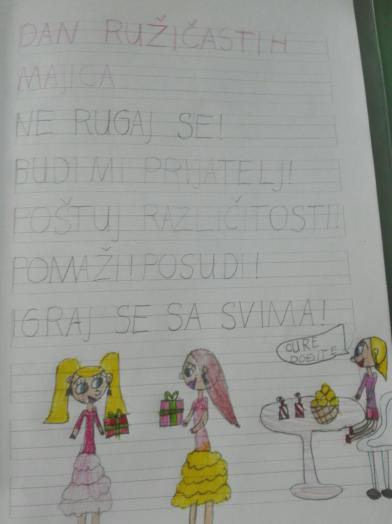 DAN RUŽIČASTIH
MAJICA
NE RUGAJ SE!
BUDI MI PRIJATELJ!
POŠTUJ RAZLIČITOSTI!
POMAŽI! POSUDI!
IGRAJ SE SA SVIMA!
CURE
DOĐITE